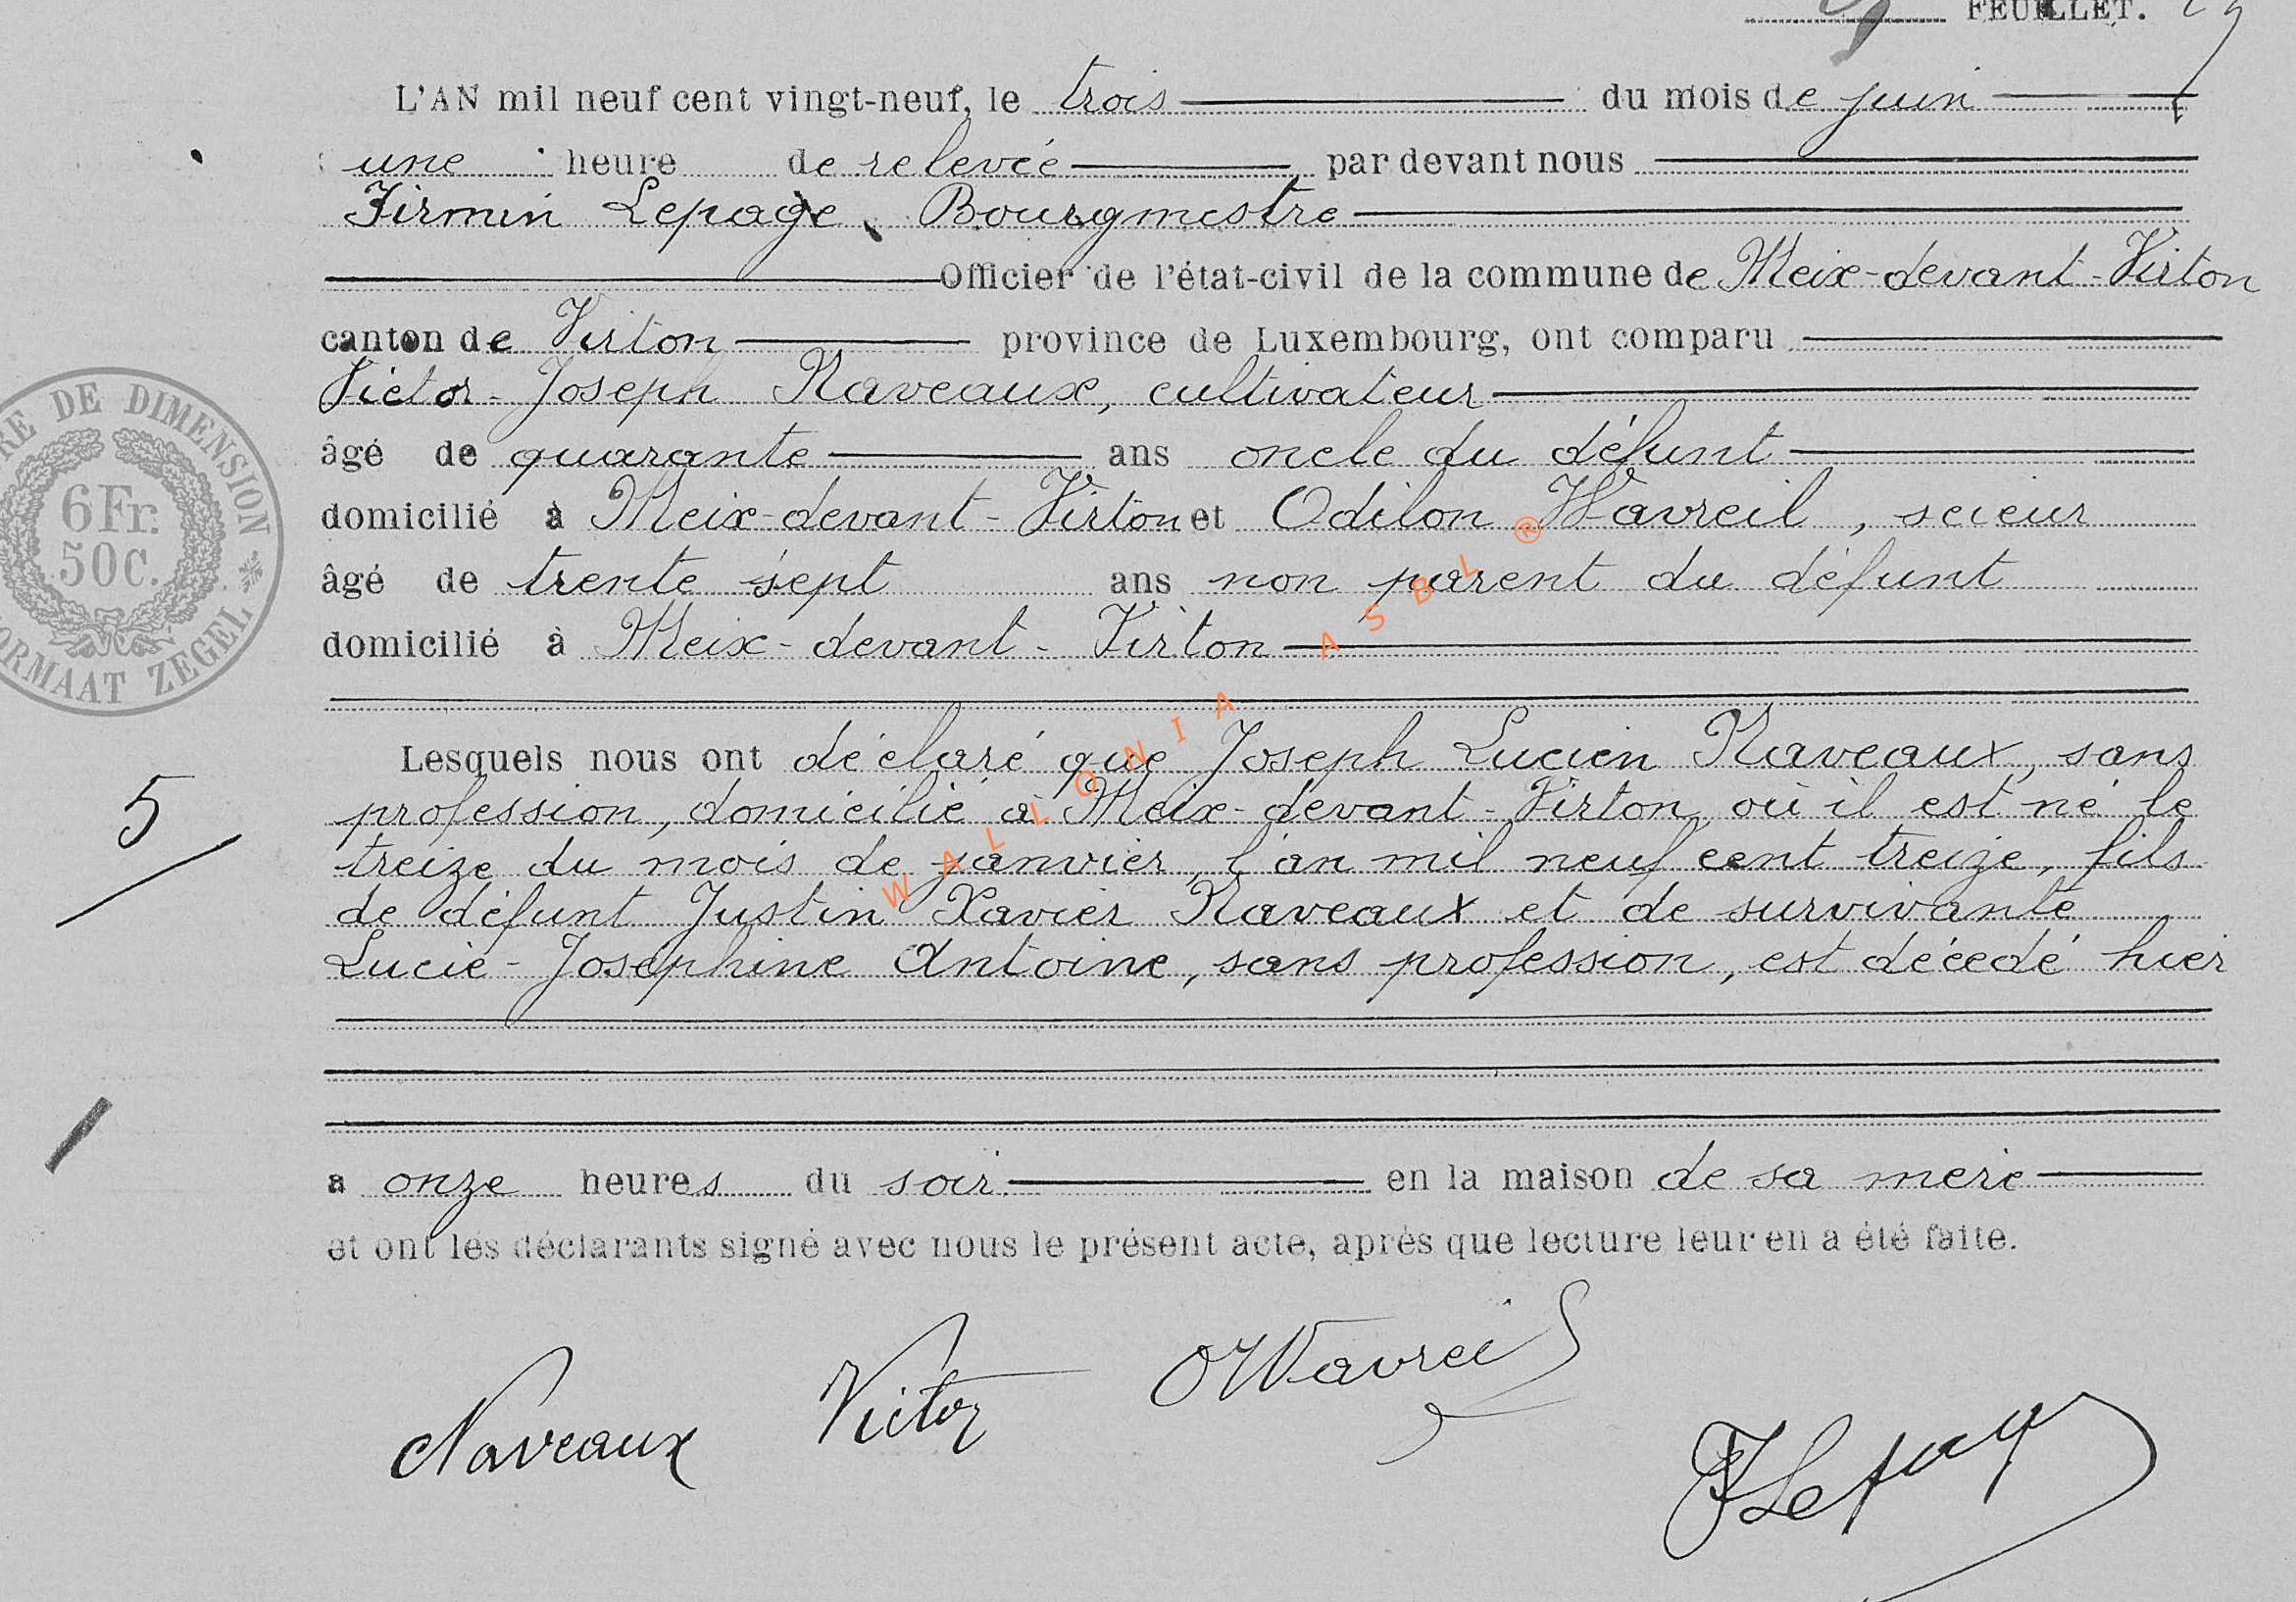 FEUILLET. 29
L'AN mil neuf cent vingt-neuf, le trois du mois de juin
une heure de relevée, par devant nous
Firmin Lepage, Bourgmestre
Officier de l'état-civil de la commune de Meix-devant-Virton
canton de Virton province de Luxembourg, ont comparu
Victor-Joseph Naveaux, cultivateur
âgé de quarante ans oncle du défunt
domicilié à Meix-devant-Virton et Odilon Wavreil, scieur
âgé de trente sept ans non parent du défunt
domicilié à Meix-devant-Virton
Lesquels nous ont déclaré que Joseph Lucien Naveaux, sans
profession, domicilié à Meix-devant-Virton où il est né le
treize du mois de janvier, l'an mil neuf cent treize, fils
de défunt Justin Xavier Naveaux et de survivante
Lucie-Joséphine Antoine, sans profession, est décédé hier
à onze heures du soir en la maison de sa mère
et ont les déclarants signé avec nous le présent acte, après que lecture leur en a été faite.
Naveaux Victor OWavreil
FLepage
5
RE DE DIMENSION
6Fr.
50c.
ORMAAT ZEGEL
WALLONIA ASBL ®